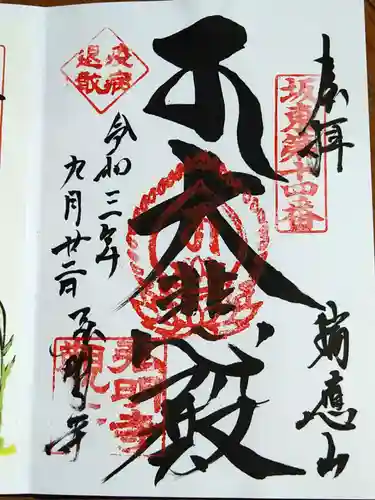 奉拝
坂東第十四番
瑞應山
大悲殿
疫病
退散
令和三年
九月廿二日
弘明寺
弘明寺
觀